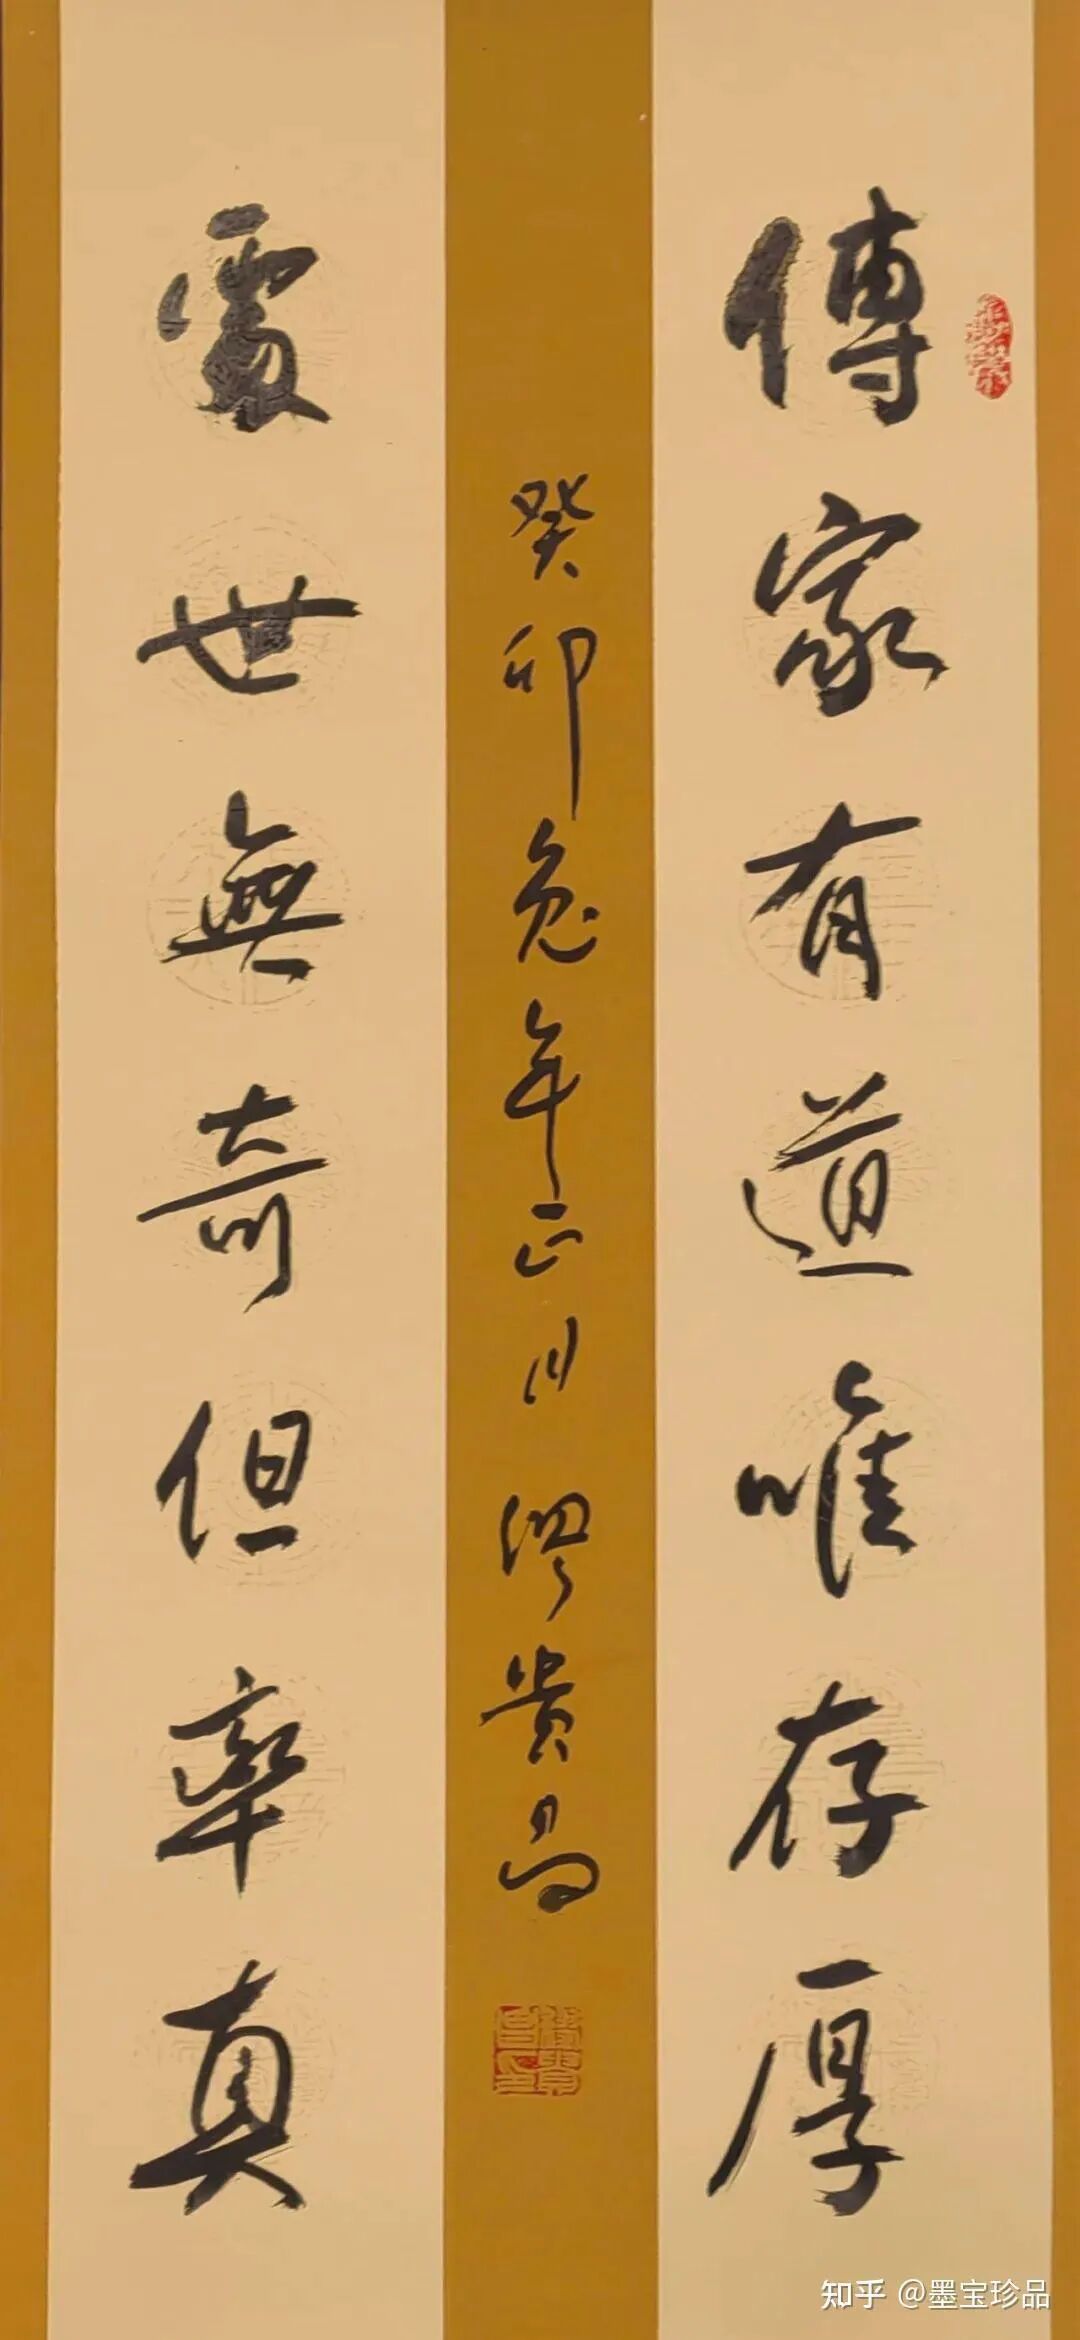 傳家有道唯存厚
處世無奇但率真
癸卯兔年正月 缪贵昌
知乎 @墨宝珍品